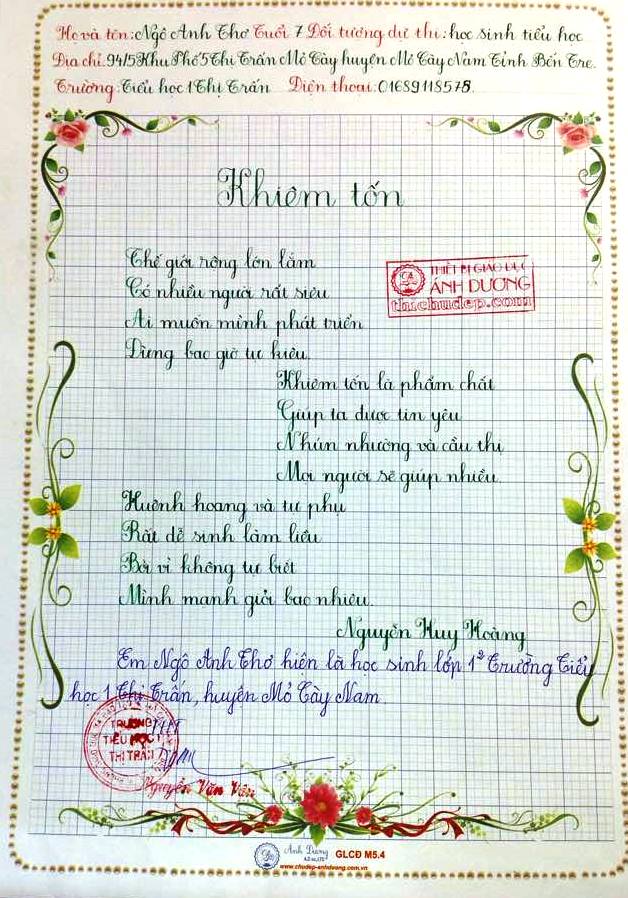 Họ và tên: Ngô Anh Thơ Tuổi 7 Đối tượng dự thi: học sinh tiểu học
Địa chỉ: 94/5 Khu Phố 5 Thị Trấn Mỏ Cày huyện Mỏ Cày Nam Tỉnh Bến Tre.
Trường: Tiểu học 1 Thị Trấn Điện thoại: 01689118578.
Khiêm tốn
Thế giới rộng lớn lắm
Có nhiều người rất siêu
Ai muốn mình phát triển
Đừng bao giờ tự kiêu.
THIẾT BỊ GIÁO DỤC
ÁNH DƯƠNG
thichudep.com
Khiêm tốn là phẩm chất
Giúp ta được tin yêu
Nhún nhường và cầu thị
Mọi người sẽ giúp nhiều.
Huênh hoang và tự phụ
Rất dễ sinh làm liều
Bởi vì không tự biết
Mình mạnh giỏi bao nhiêu.
Nguyễn Huy Hoàng
Em Ngô Anh Thơ hiện là học sinh lớp 1² Trường Tiểu
học 1 Thị Trấn, huyện Mỏ Cày Nam.
TRƯỜNG
TIỂU HỌC 1
THỊ TRẤN
Nguyễn Văn Vẹn
Ánh Dương
GLCĐ M5.4
www.chudep-anhduong.com.vn